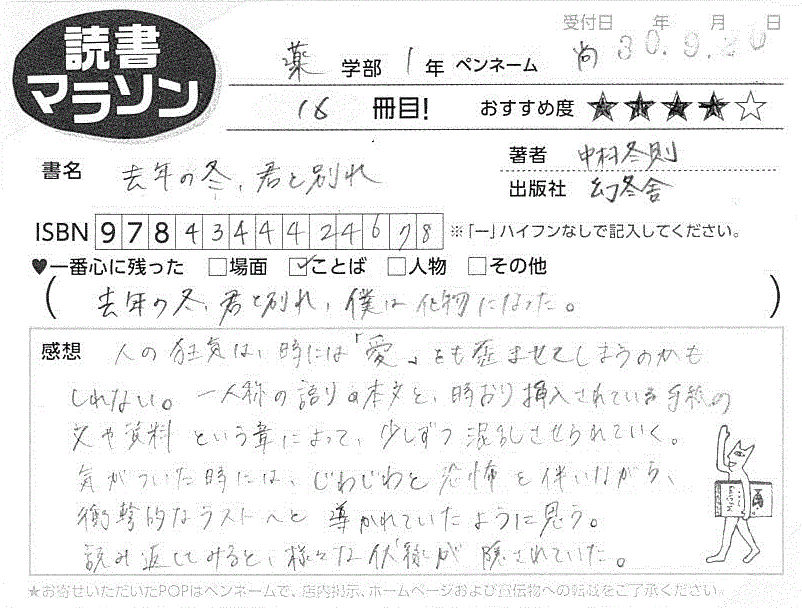 読書
マラソン
受付日 年 月 日
30.9.20
薬 学部 1 年 ペンネーム 尚
16 冊目! おすすめ度 ★★★★☆
書名 去年の冬、君と別れ
著者 中村冬則
出版社 幻冬舎
ISBN 9784344424678 ※「ー」ハイフンなしで記入してください。
♥一番心に残った □場面 ☑ことば □人物 □その他
(去年の冬、君と別れ、僕は化物になった。)
感想 人の狂気は、時には「愛」をも歪ませてしまうのかも
しれない。一人称の語りの本文と、時おり挿入されている手紙の
文や資料という章によって、少しずつ混乱させられていく。
気がついた時には、じわじわと恐怖を伴いながら、
衝撃的なラストへと導かれていたように思う。
読み返してみると、様々な伏線が隠されていた。
★お寄せいただいたPOPはペンネームで、店内掲示、ホームページおよび宣伝物への転載をご了承ください。